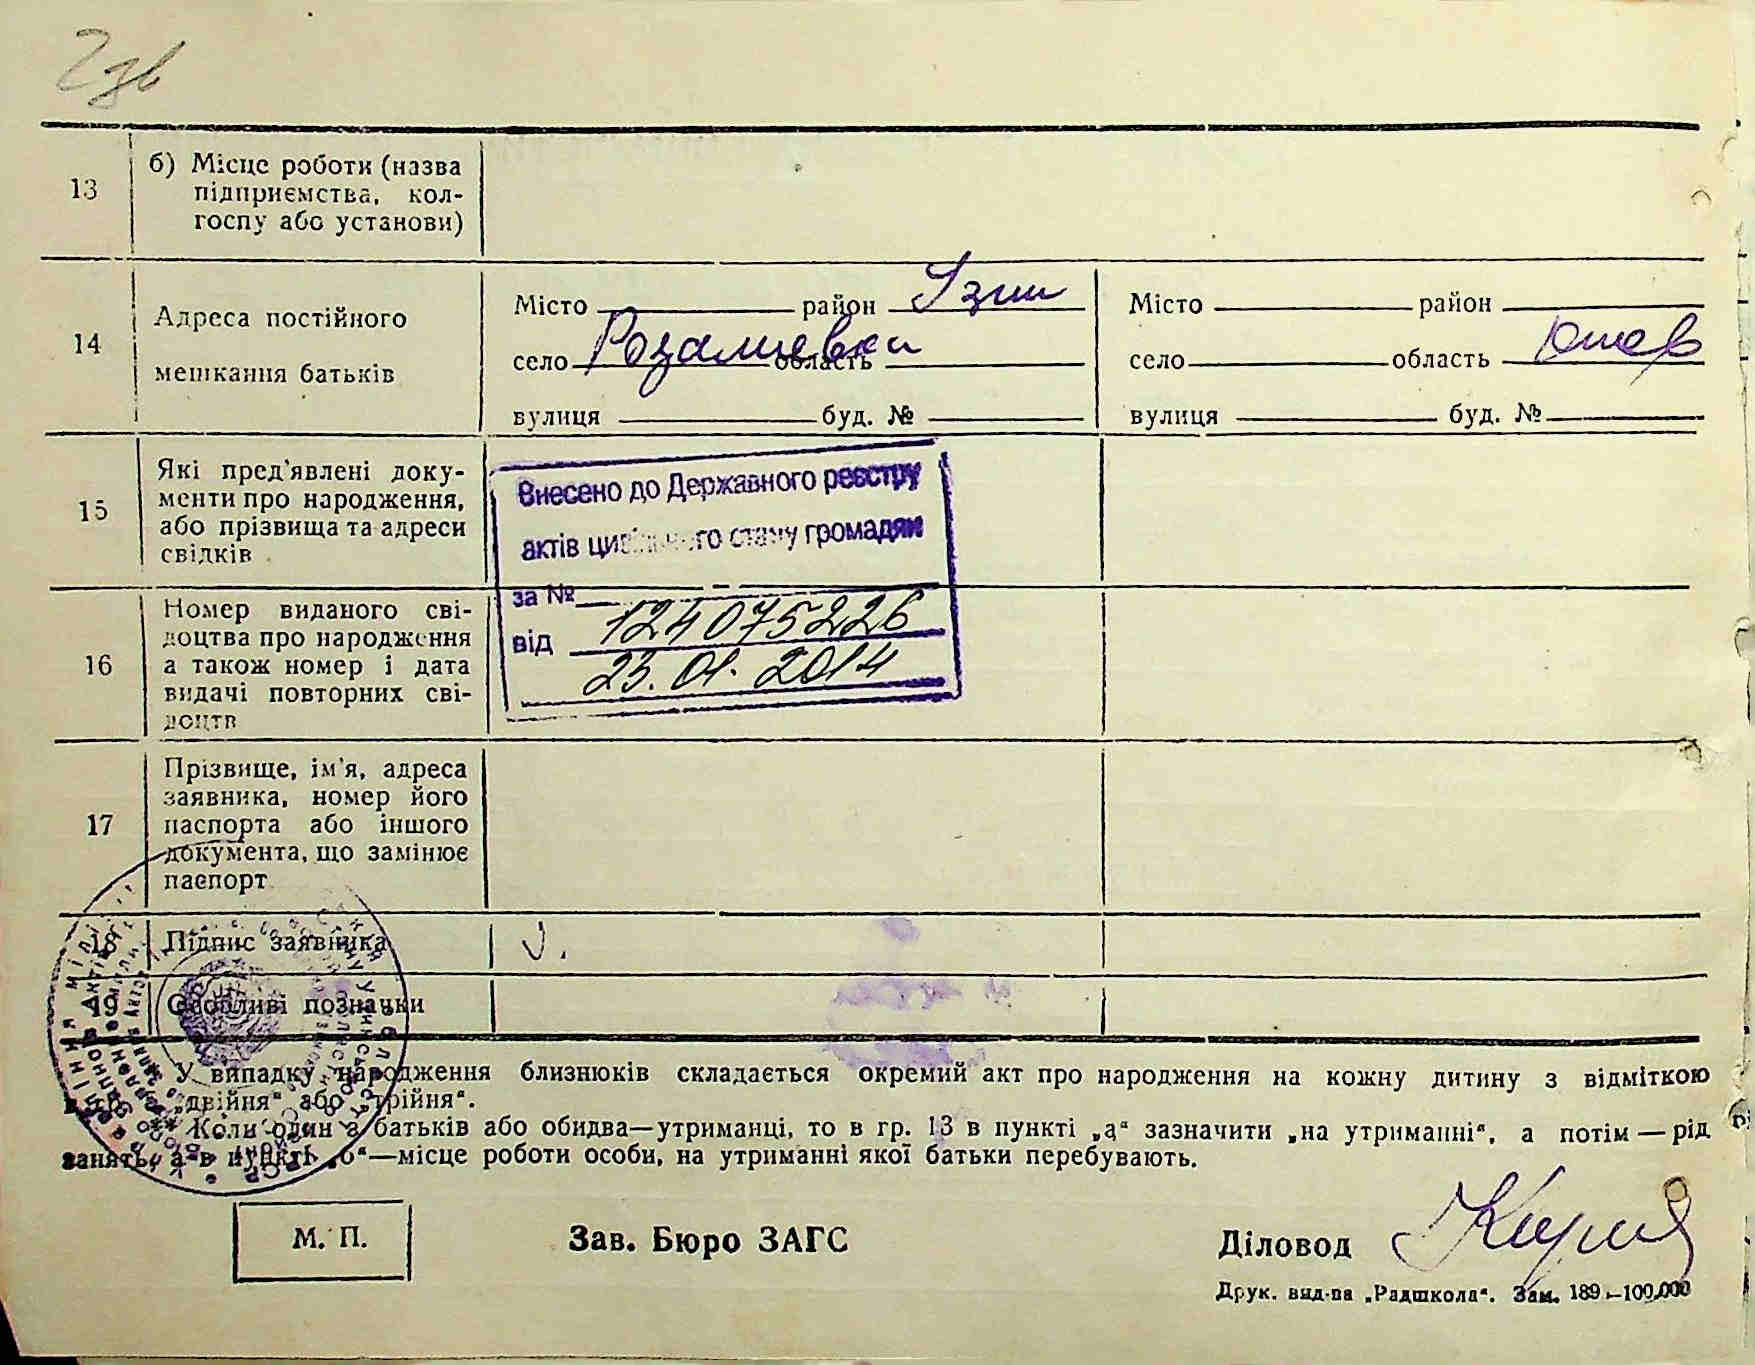 13
б) Місце роботи (назва
підприємства, кол-
госпу або установи)
14
Адреса постійного
мешкання батьків
Місто район
село Розаліевка область
вулиця буд. №
Місто район
село область
вулиця буд. №
15
Які пред'явлені доку-
менти про народження,
або прізвища та адреси
свідків
Внесено до Державного реєстру
актів цивільного стану громадян
за № 124075226
від 23.01.2014
16
Номер виданого сві-
доцтва про народження
а також номер і дата
видачі повторних сві-
доцтв
17
Прізвище, ім'я, адреса
заявника, номер його
паспорта або іншого
документа, що замінює
паспорт
18
Підпис заявника
19
Особливі позначки
У випадку народження близнюків складається окремий акт про народження на кожну дитину з відміткою
„двійня“ або „трійня“.
Коли один з батьків або обидва—утриманці, то в гр. 13 в пункті „а“ зазначити „на утриманні“, а потім — рід
занять, а в пункті „б“—місце роботи особи, на утриманні якої батьки перебувають.
М. П.
Зав. Бюро ЗАГС
Діловод
Друк. вид-ва „Радшкола“. Зам. 189—100,000